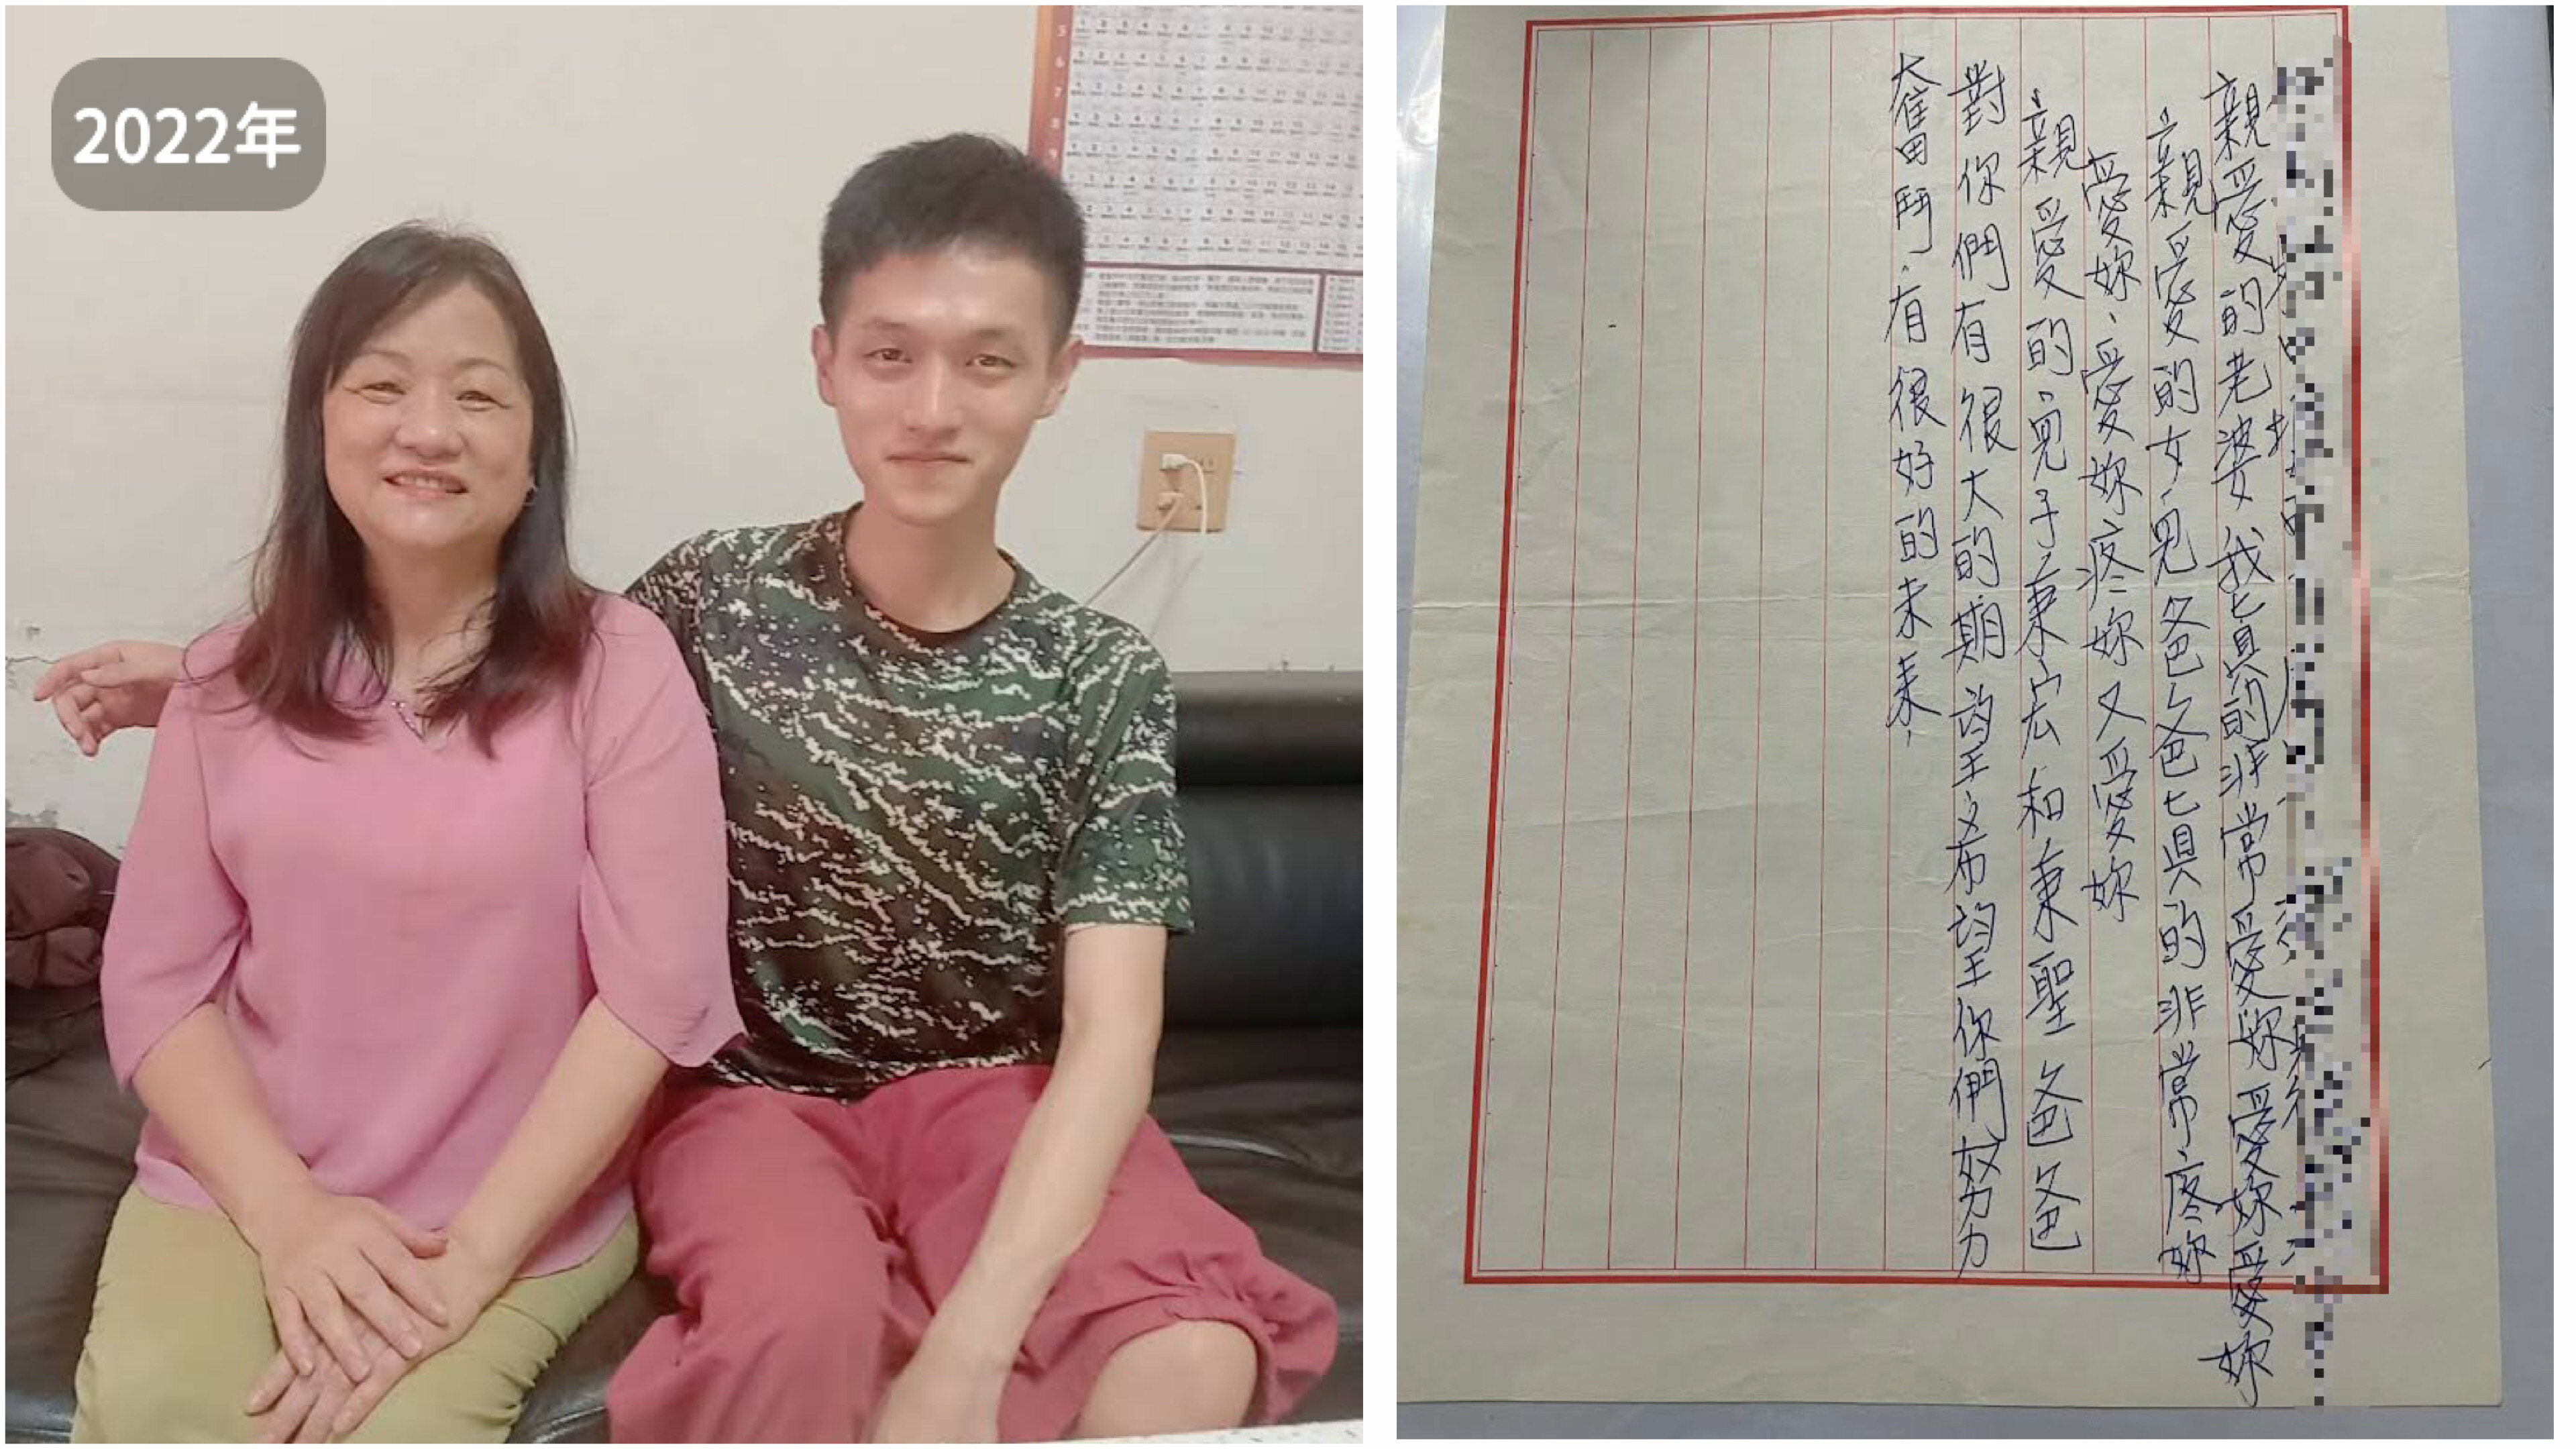 2022年
親愛的老婆我真的非常愛妳愛妳愛妳
親愛的女兒爸爸真的非常疼妳
愛妳、愛妳疼妳又愛妳
親愛的兒子秉宏和秉聖爸爸
對你們有很大的期望希望你們努力
奮鬥有很好的未來